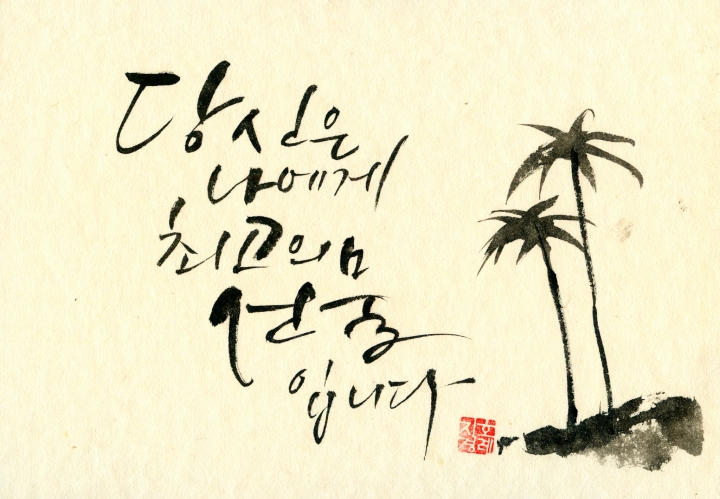 당신은
나에게
최고의
선물
입니다